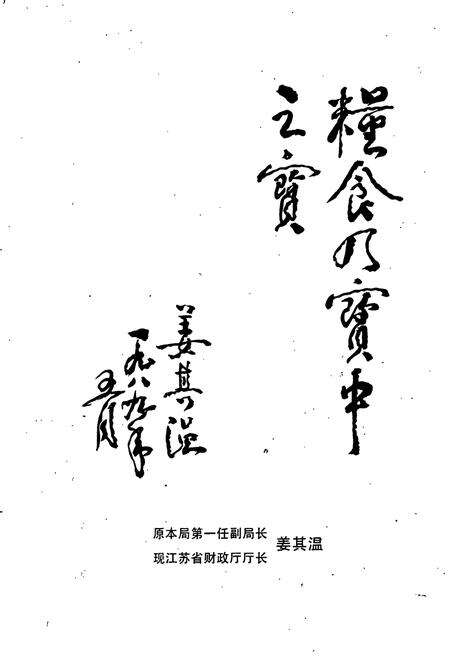 糧食乃寶中
之寶
姜其温
一九八九年
五月
原本局第一任副局长
现江苏省财政厅厅长
姜其温